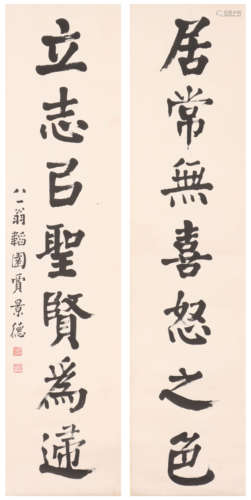 居常無喜怒之色
立志㠯聖賢為
八一翁韜園賈景德